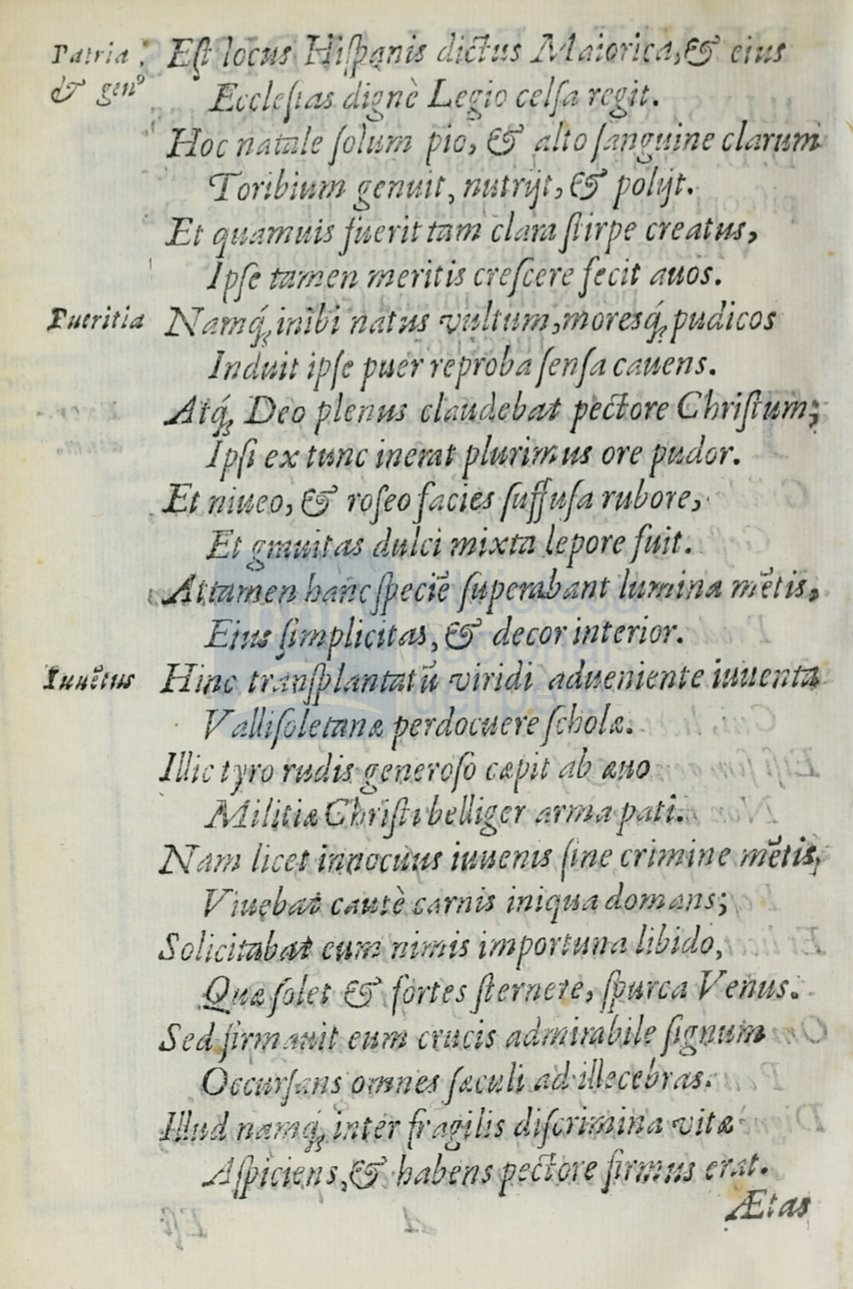 Patria Eſt locus Hiſpanis dictus Maiorica, & eius
& genº Eccleſias dignè Legio celſa regit.
Hoc natale ſolum pio, & alto ſanguine clarum
Toribium genuit, nutrijt, & polijt.
Et quamuis fuerit tam clara ſtirpe creatus,
Ipſe tamen meritis creſcere fecit auos.
Pueritia Namq́ꝫ inibi natus vultum, moresq́ꝫ pudicos
Induit ipſe puer reproba ſenſa cauens.
Atq́ꝫ Deo plenus claudebat pectore Chriſtum;
Ipſi ex tunc inerat plurimus ore pudor.
Et niueo, & roſeo facies ſuffuſa rubore,
Et grauitas dulci mixta lepore fuit.
Attamen hanc ſpeciē ſuperabant lumina mētis,
Eius ſimplicitas, & decor interior.
Iuuētus Hinc tranſplantatū viridi adueniente iuuenta
Valliſoletanæ perdocuere ſcholæ.
Illic tyro rudis generoſo cæpit ab æuo
Militiæ Chriſti belliger arma pati.
Nam licet innocuus iuuenis ſine crimine mētis,
Viuębat cautè carnis iniqua domans;
Solicitabat eum nimis importuna libido,
Quæ ſolet & fortes ſternere, ſpurca Venus.
Sed firmauit eum crucis admirabile ſignum
Occurſans omnes ſæculi ad illecebras.
Illud namq́ꝫ inter fragilis diſcrimina vitæ
Aſpiciens, & habens pectore firmus erat.
Ætas